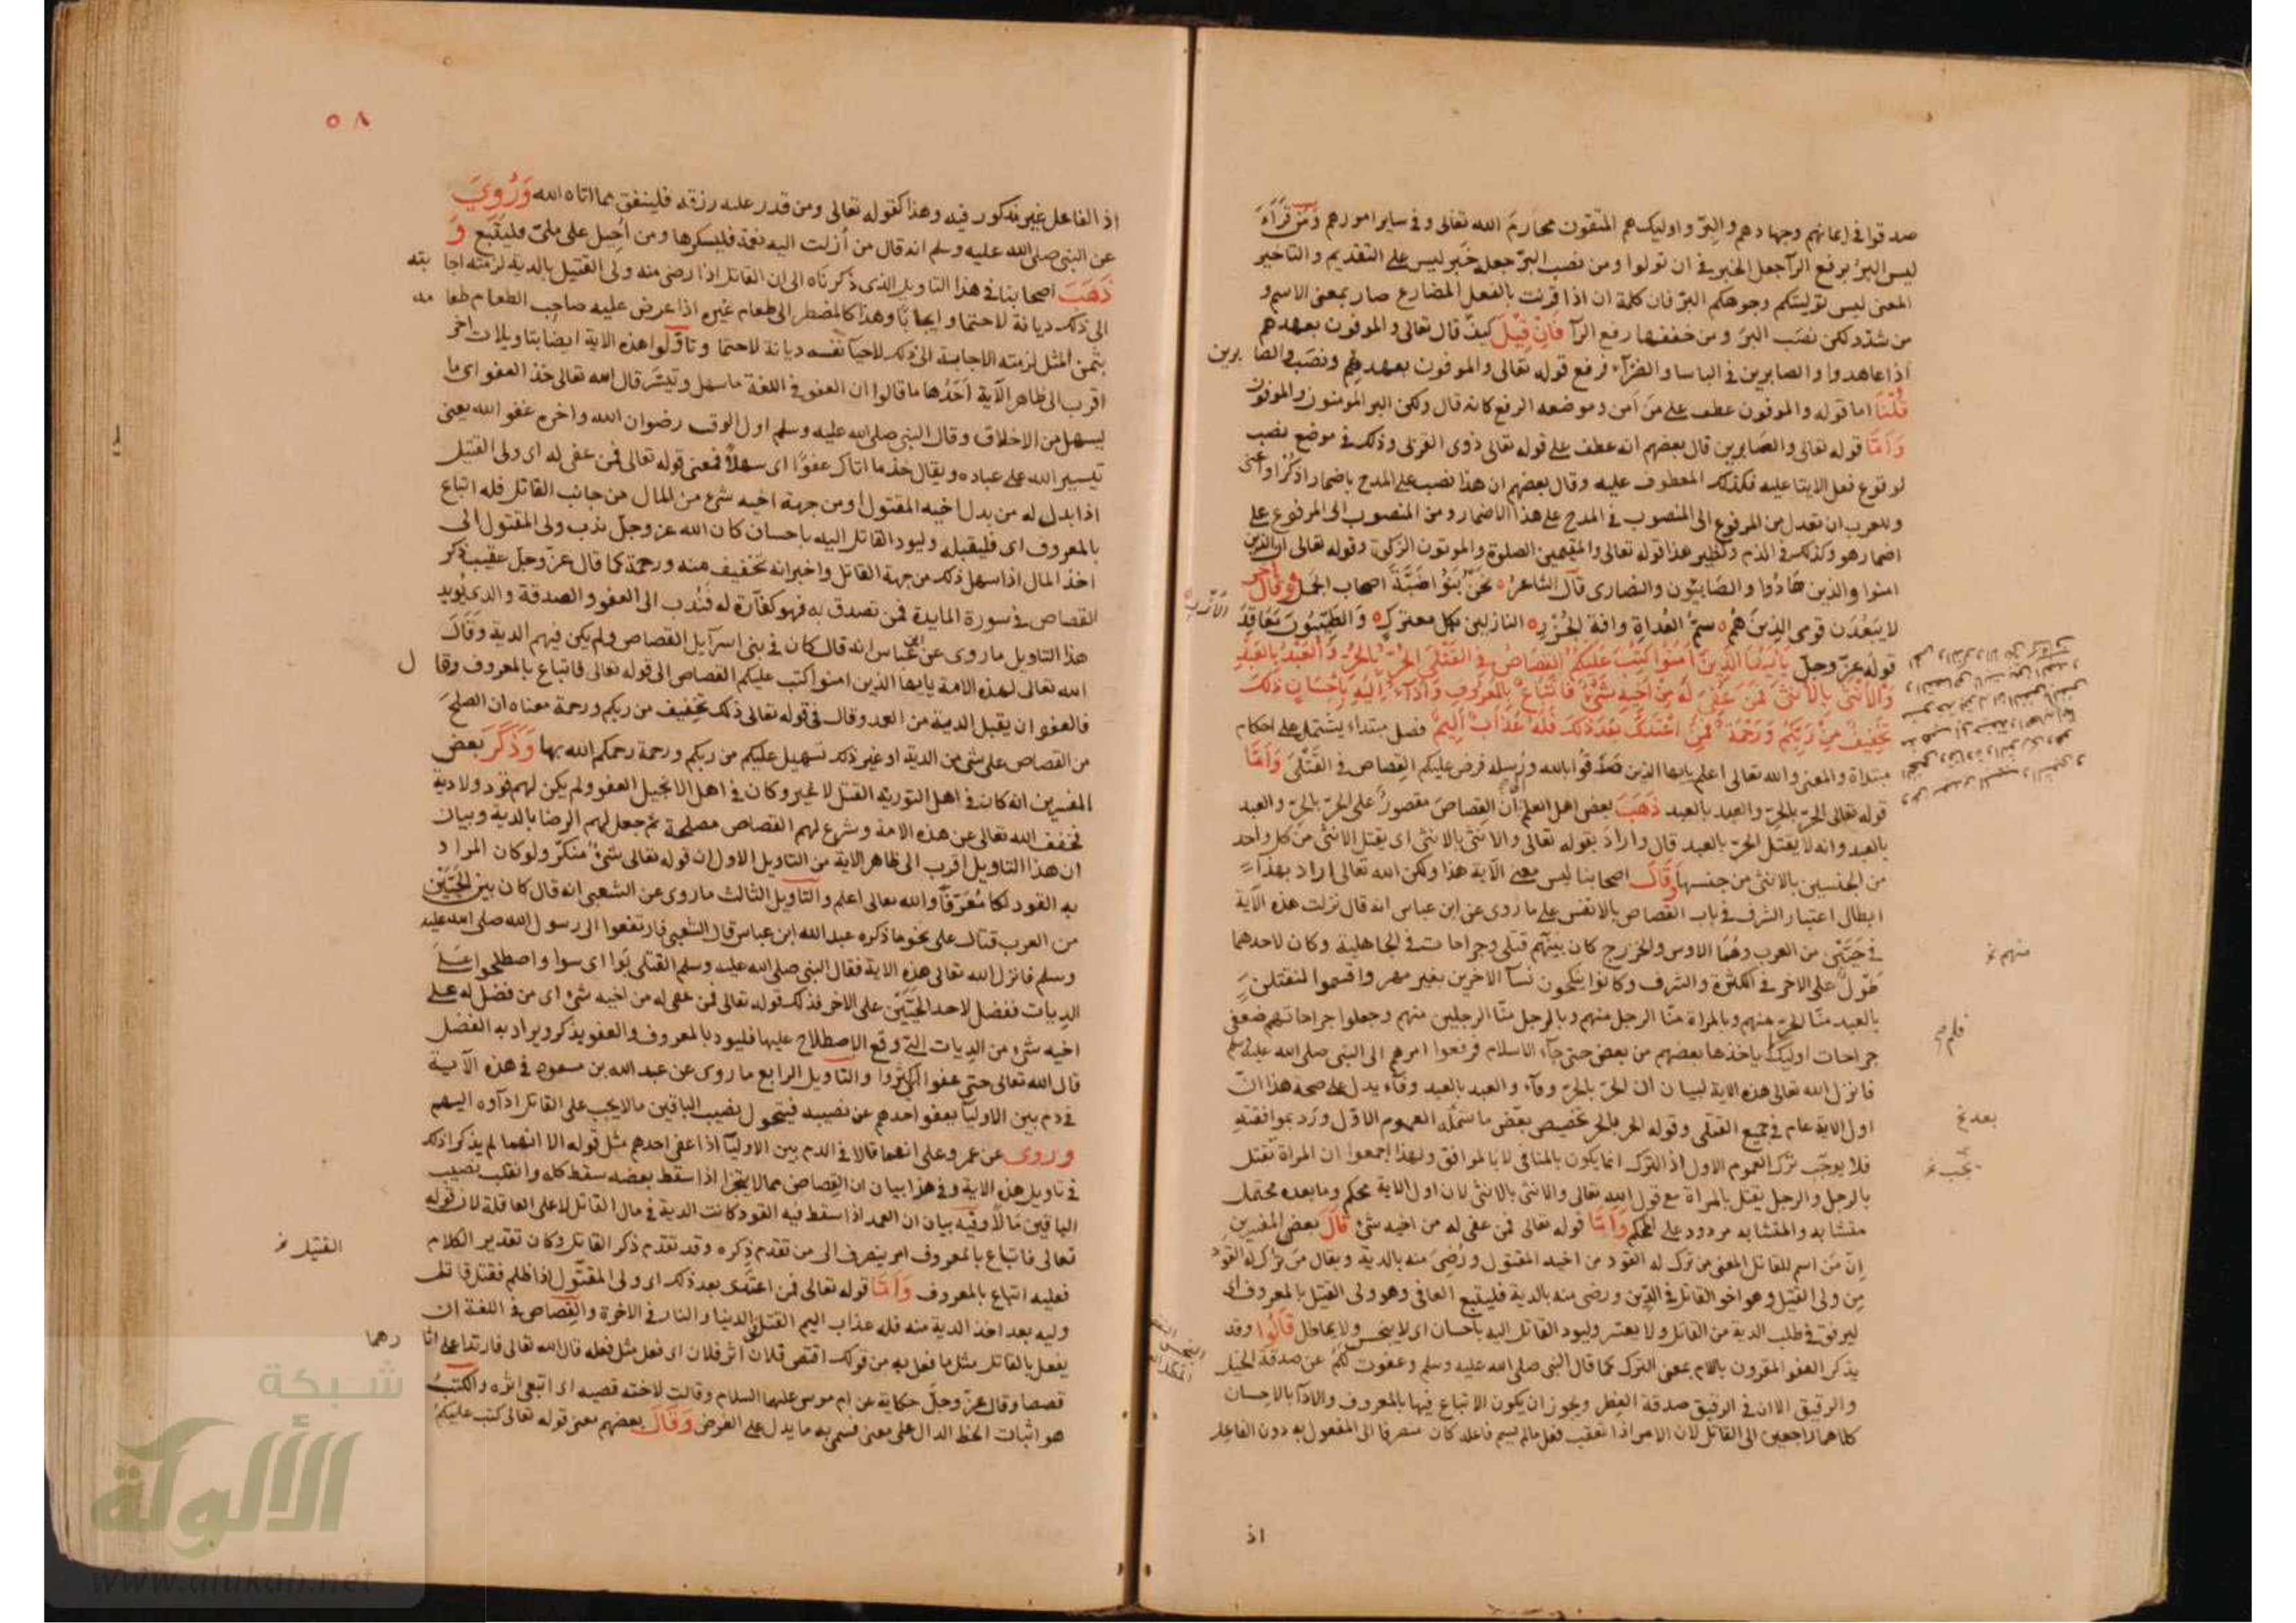 صدقوا في ايمانهم وجهادهم والبرّ واوليك هم المتّقون محارم الله تعالى وفي ساير امورهم ومن قرأ
ليس البرُّ برفع الرآ جعل الخبر في ان تولوا ومن نصب البرّ جعله خبر ليس على التقديم والتاخير
المعنى ليس توليتكم وجوهكم البرّ فان كلمة ان اذا قرنت بالفعل المضارع صار بمعنى الاسم و
من شدّد لكن نصب البرّ ومن خففها رفع الرآ فَاِنْ قِيْلَ كيف قال تعالى والموفون بعهدهم
اذا عاهدوا والصابرين في الباسا والضرآء لرفع قوله تعالى والموفون بعهدهم ونصب والصا برين
قُلْنَا اما قوله والموفون عطف على من آمن وموضعه الرفع كانه قال ولكن البر المومنون والموفون
وَاَمَّا قوله تعالى والصابرين قال بعضهم انه عطف على قوله تعالى ذوى القربى وذلك في موضع نصب
لوقوع فعل الايتا عليه فكذلك المعطوف عليه وقال بعضهم ان هذا نصب على المدح باضمار اذكر او اعنى
وللعرب ان تعدل من المرفوع الى المنصوب في المدح على هذا الاضمار ومن المنصوب الى المرفوع على
اضمار هو وكذلك في الذم ونظير هذا قوله تعالى والمقيمين الصلوة والموتون الزكوة وقوله تعالى ان الذين
امنوا والذين هَادُوا والصَابيُون والنصارى قال الشاعر نحن بَنُو ضَبَّةَ اصحاب الجَمل وقال اخر
لا يبعُدَن قومى الذِينَ هُم سمُّ العُداةِ وافة الجُزْرِ النازلين بكل معترك وَالطيّبُونَ مَعَاقِدَ
الاُزُرِ
قوله عزّ وجلّ يَاَيُّهَا الَّذِينَ اٰمَنُوا كُتِبَ عَلَيْكُمُ القِصَاصُ فِي القَتْلَى الحُرُّ بِالحُرِّ وَالعَبْدُ بِالعَبْدِ
وَالاُنْثَى بِالاُنْثَى فَمَنْ عُفِيَ لَهُ مِنْ اَخِيهِ شَيْءٌ فَاتِّبَاعٌ بِالمَعْرُوفِ وَاَدَآءٌ اِلَيْهِ بِاِحْسَانٍ ذٰلِكَ
تَخْفِيفٌ مِنْ رَبِّكُمْ وَرَحْمَةٌ فَمَنِ اعْتَدَى بَعْدَ ذٰلِكَ فَلَهُ عَذَابٌ اَلِيمٌ فصل مبتداء يشتمل على احكام
مبتداة والمعنى والله تعالى اعلم يايها الذين صَدَّقوا بالله ورُسله فرض عليكم القِصاص في القَتْلَى وَاَمَّا
قوله تعالى الحرّ بالحرّ والعبد بالعبد ذَهَبَ بعض اهل العلم انّ القِصاصَ مقصورٌ على الحرّ بالحرّ والعبد
بالعبد وانه لا يقتل الحرّ بالعبد قال واراد بقوله تعالى والانثى بالانثى اى يقتل الانثى من كل واحد
من الجنسين بالانثى من جنسها وقَالَ اصحابنا ليس معنى الآية هذا ولكن الله تعالى اراد بهذا
ابطال اعتبار الشرف في باب القصاص بالانفس على ما روى عن ابن عباس انه قال نزلت هذه الآية
في حَيَّيْن من العرب وهُمَا الاوس والخزرج كان بينهم قتلى وجراحات في الجاهلية وكان لاحدهما
منهم خ
طَوْلٌ على الاخر في الكثرة والشرف وكانوا ينكحون نسآ الاخرين بغير مهر واقسموا لنقتلن
بالعبد منّا الحرّ منهم وبالمراة منّا الرجل منهم وبالرجل منّا الرجلين منهم وجعلوا جراحاتهم ضعفى
جراحات اوليك ياخذها بعضهم من بعض حتى جآء الاسلام فرفعوا امرهم الى النبى صلى الله عليه وسلم
فانزل الله تعالى هذه الاية لبيان ان الحرّ بالحرّ وفآء والعبد بالعبد وفآء يدل على صحة هذا انّ
اول الاية عام في جميع القتلى وقوله الحر بالحر تخصيص بعض ما شمله العموم الاوّل ورد بموافقته
بعد خ
فلا يوجب ترك العموم الاول اذ الترك انما يكون بالمنافى لا بالموافق ولهذا اجمعوا ان المراة تقتل
يجب خ
بالرجل والرجل يقتل بالمراة مع قول الله تعالى والانثى بالانثى لان اول الاية محكم وما بعده محتمل
متشابه والمتشابه مردود على المحكم وَاَمَّا قوله تعالى فمن عفى له من اخيه شئ قَالَ بعض المفسرين
اِنّ مَن اسم للقاتل المعنى من ترك له القود من اخيه المقتول ورُضِىَ منه بالدية ويقال من ترك له القود
مِن ولى القتيل وهو اخو القاتل في الدّين ورضى منه بالدية فليتبع العافى وهو ولى القتيل بالمعروف اى
ليرفق في طلب الدية من القاتل ولا يعسّر وليود القاتل اليه باحسان اى لا يبخس ولا يماطل قَالُوا وقد
يذكر العفو المقرون باللام بمعنى الترك كما قال النبى صلى الله عليه وسلم وعفوت لكم عن صدقة الخيل
والرقيق الا ان في الرقيق صدقة الفطر ويجوز ان يكون الاتباع فيها بالمعروف والادآ بالاحسان
كلاهما راجعين الى القاتل لان الامر اذا تعقب فعل مالم يسم فاعله كان منصرفا الى المفعول به دون الفاعل
اذ
٥٨
اذ الفاعل غير مذكور فيه وهذا كقوله تعالى ومن قدر عليه رزقه فلينفق مما اتاه الله وَرُوِيَ
عن النبى صلى الله عليه وسلم انه قال من اُزلت اليه نعمة فليشكرها ومن اُحِيل على ملىّ فليُتبَع وَ
ذَهَبَ اصحابنا في هذا التاويل الذى ذكرناه الى ان القاتل اذا رضى منه ولى القتيل بالدية لزمته اجا بته
الى ذلك ديانة لا حتما وايجابًا وهذا كالمضطر الى طعام غيره اذا عرض عليه صاحب الطعام طعا مه
بثمن المثل لزمته الاجابة الى ذلك لاحيآ نفسه ديانة لا حتما وتاوّلوا هذه الاية ايضا بتاويلات اخر
اقرب الى ظاهر الآية اَحَدُها ما قالوا ان العفو في اللغة ما سهل وتيسّر قال الله تعالى خذ العفو اى ما
ليسهل من الاخلاق وقال النبى صلى الله عليه وسلم اول الوقت رضوان الله واخره عفو الله يعنى
تيسير الله على عباده ويقال خذ ما اتاك عفوًا اى سهلًا فمعنى قوله تعالى فمن عفى له اى ولى القتيل
اذا بدل له من بدل اخيه المقتول او من جهة اخيه شئ من المال من جانب القاتل فله اتباع
بالمعروف اى فليقبله وليود القاتل اليه باحسان كان الله عز وجلّ ندب ولى المقتول الى
اخذ المال اذا سهل ذلك من جهة القاتل واخبر انه تخفيف منه ورحمة كما قال عزّ وجلّ عقيب ذكر
القصاص في سورة المايدة فمن تصدق به فهو كفآرة له فَنُدب الى العفو والصدقة والذى يُويد
هذا التاويل ما روى عن ابن عباس انه قال كان في بنى اسرآيل القصاص ولم يكن فيهم الدية وقال
الله تعالى لهذه الامة يايها الذين امنوا كتب عليكم القصاص الى قوله تعالى فاتباع بالمعروف وقا ل
فالعفو ان يقبل الدية من العمد وقال في قوله تعالى ذلك تخفيف من ربكم ورحمة معناه ان الصلحَ
من القصاص على شى من الدية او غير ذلك تسهيل عليكم من ربكم ورحمة رحمكم الله بها وَذَكَرَ بعض
المفسرين انه كان في اهل التورية القتل لا غير وكان في اهل الانجيل العفو ولم يكن لهم قود ولا دية
فخفف الله تعالى عن هذه الامة وشرع لهم القصاص مصلحة ثم جعل لهم الرضا بالدية وبيان
ان هذا التاويل اقرب الى ظاهر الاية من التاويل الاول ان قوله تعالى شئٌ منكّر ولو كان المرا د
به القود لكا مُعَرّفًا والله تعالى اعلم والتاويل الثالث ما روى عن الشعبى انه قال كان بين الحَيَّيْن
من العرب قتال على نحو ما ذكره عبد الله ابن عباس قال الشعبى فارتفعوا الى رسول الله صلى الله عليه
وسلم فانزل الله تعالى هذه الاية فقال النبى صلى الله عليه وسلم القتلى بَوا اى سوا واصطلحوا عَلَى
الديات ففضل لاحد الحَيَّيْن على الاخر فذلك قوله تعالى فمن عفى له من اخيه شئ اى من فضل له على
اخيه شئ من الديات التى وقع الاصطلاح عليها فليود بالمعروف والعفو يذكر ويراد به الفضل
قال الله تعالى حتى عفوا اى كثروا والتاويل الرابع ما روى عن عبد الله بن مسعود في هذه الآية
في دم بين الاوليآ يعفو احدهم عن نصيبه فيتحول نصيب الباقين مالا يجب على القاتل ادآوه اليهم
وروى عن عمر وعلى انهما قالا في الدم بين الاوليآ اذا عفى احدهم مثل قوله الا انهما لم يذكرا ذلك
في تاويل هذه الاية وفي هذا بيان ان القصاص مما لا يتجزا اذا سقط بعضه سقط كله وانقلب نصيب
الباقين مَالًا وفيه بيان ان العمد اذا سقط فيه القود كانت الدية في مال القاتل لا على العاقلة لان قوله
تعالى فاتباع بالمعروف امر ينصرف الى من تقدم ذِكره وقد تقدم ذكر القاتل وكان تقدير الكلام
القتيل خ
فعليه اتباع بالمعروف وَاَمَّا قوله تعالى فمن اعتدى بعد ذلك اى ولى المقتول اذا ظلم فقتل قاتل
وليه بعد اخذ الدية منه فله عذاب اليم القتل في الدنيا والنار في الاخرة والقصاص في اللغة ان
يفعل بالقاتل مثل ما فعل به من قولك اقتص فلان اثر فلان اى فعل مثل فعله قال الله تعالى فارتدا على اثا رهما
قصصا وقال عزّ وجلّ حكاية عن ام موسى عليهما السلام وقالت لاخته قصيه اى اتبعى اثره والكَتْبُ
هو اثبات الخط الدال على معنى فسمى به ما يدل على الفرض وَقَالَ بعضهم معنى قوله تعالى كتب عليكم
شبكة
الألوكة
www.alukah.net